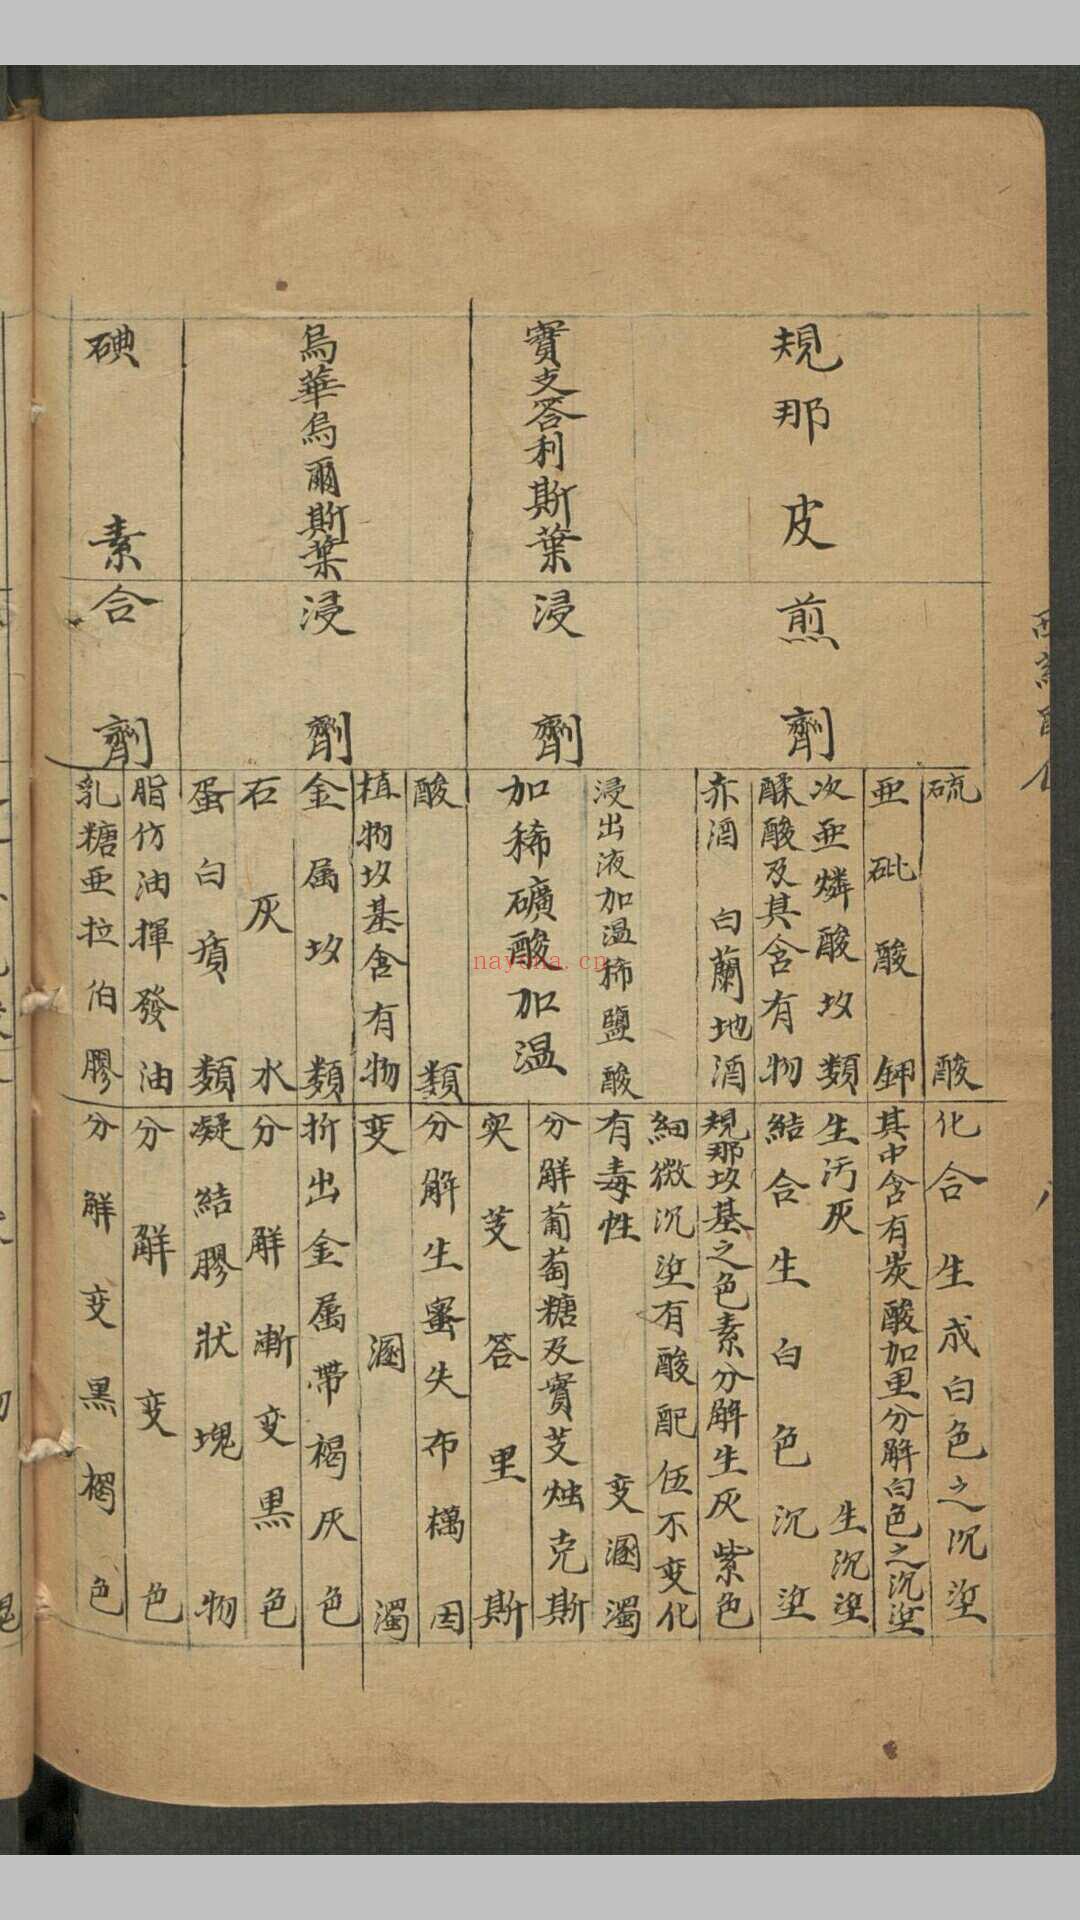 規那皮煎劑
硫酸
化合生成白色之沉垽
亜砒酸鉀
其中含有炭酸加里分解白色之沉垽
次亜燐酸㘦類
生汚灰生沉垽
鞣酸及其含有物
結合生白色沉垽
赤酒 白蘭地酒
規那㘦基之色素分解生灰紫色
細微沉垽有酸配伍不变化
實芝答利斯葉浸劑
浸出液加温稀鹽酸
有毒性变溷濁
加稀礦酸加温
分解葡萄糖及實芰燭克斯
实芰答里斯
烏華烏爾斯葉浸劑
酸類
分解生蜜失布檽因
植物㘦基含有物
变溷濁
金属㘦類
折出金属帶褐灰色
石灰水
分解漸变黒色
蛋白質類
凝結膠狀塊物
碘素合劑
脂仿油揮發油
分解变色
乳糖亜拉伯膠
分解变黒褐色
nayona.cn